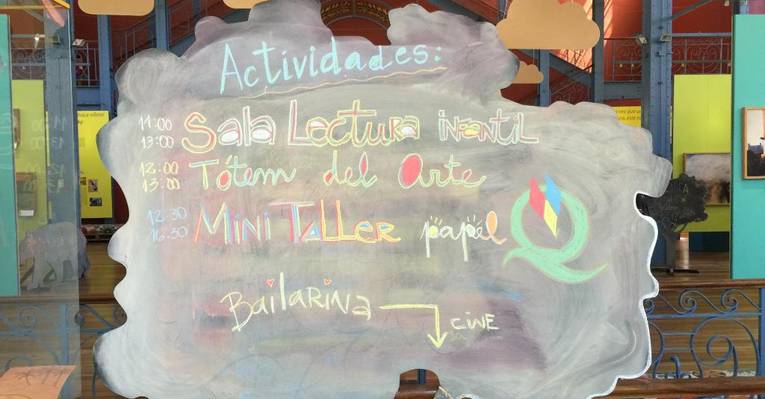 Actividades:
11:00 Sala Lectura infantil
13:00
12:00 Tótem del Arte
13:00
12:30 Mini Taller papel
16:30
Bailarina
cine